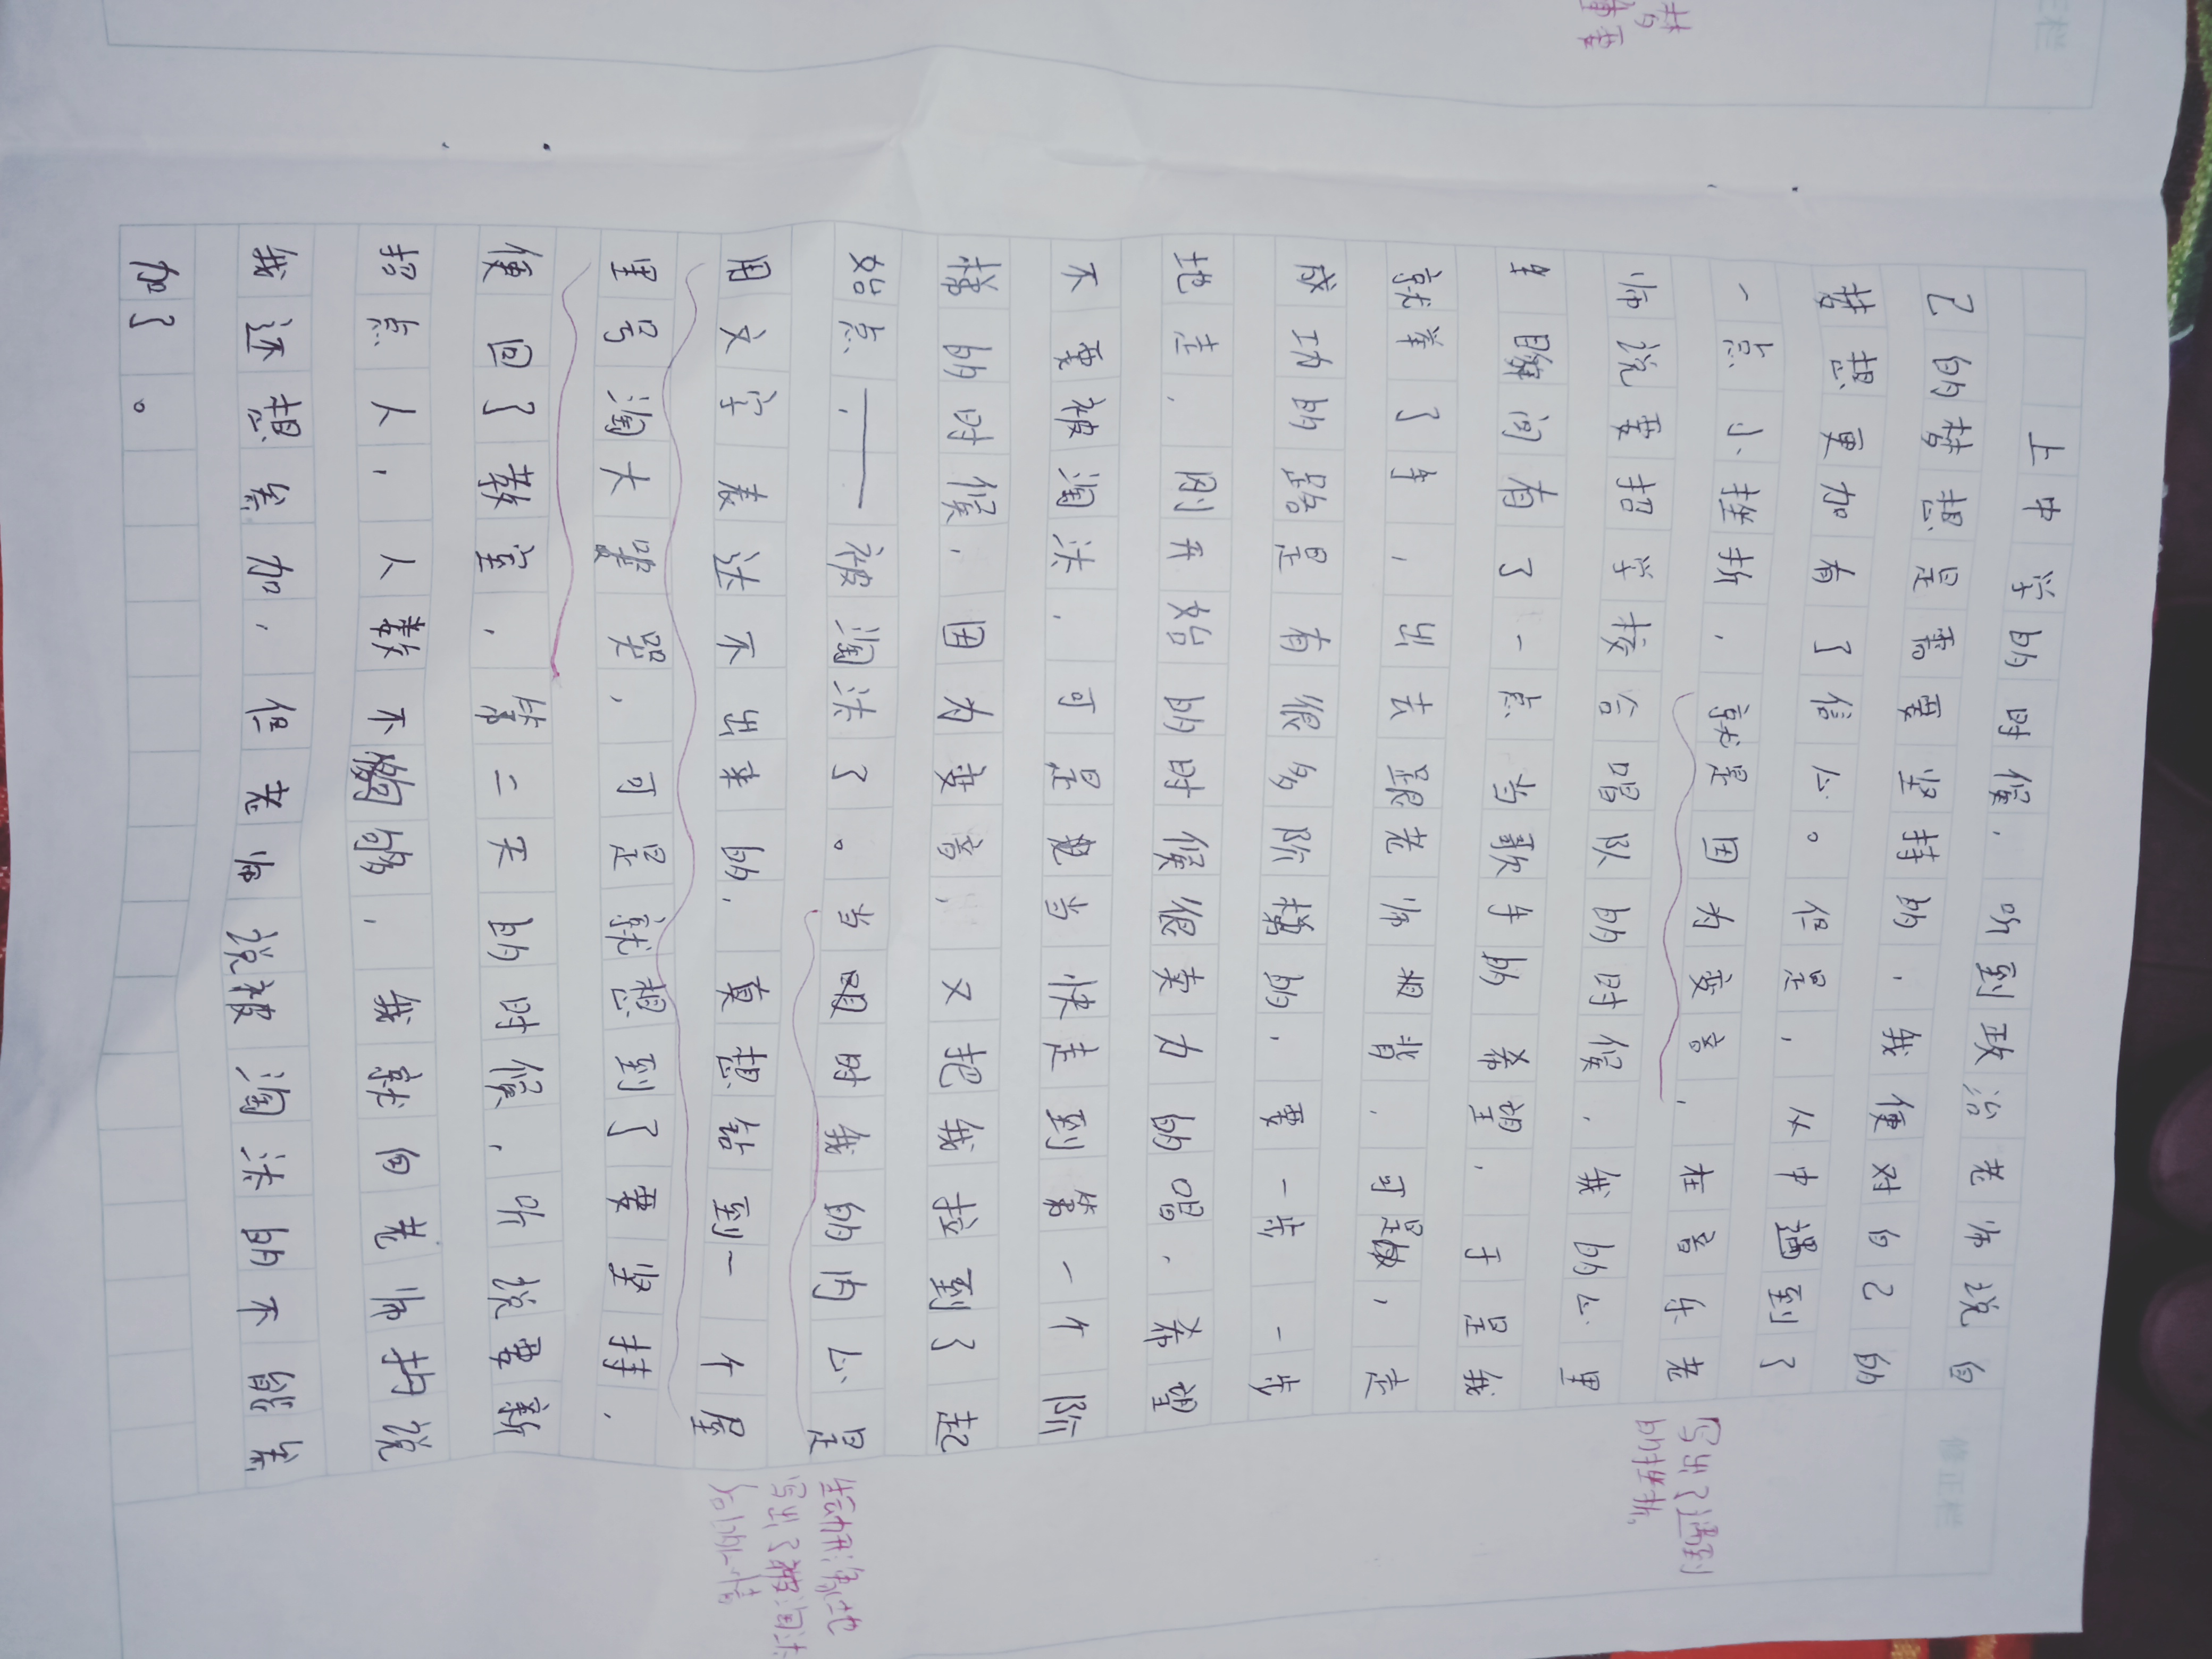 正栏
修正栏
上中学的时候，听到政治老师说自
己的梦想是需要坚持的，我便对自己的
梦想更加有了信心。但是，从中遇到了
一点小挫折，就是因为变音，在音乐老
师说要招学校合唱队的时候，我的心里
瞬间有了一点当歌手的希望，于是我
就举了手，出去跟老师唱背，可是，走
成功的路是有很多阶梯的，要一步一步
地走，刚开始的时候很卖力的唱，希望
不要被淘汰，可是也当快走到第一个阶
梯的时候，因为变音，又把我拉到了起
始点，——被淘汰了。当时我的内心是
用文字表达不出来的，真想钻到一个屋
里号淘大哭，可是就想到了要坚持，
便回了教室，第二天的时候，听说要新
招点人，人数不够，我就向老师说
我还想参加，但老师说被淘汰的不能参
加了。
写出了遇到
的挫折。
生动形象地
写出了被淘汰
后的心情